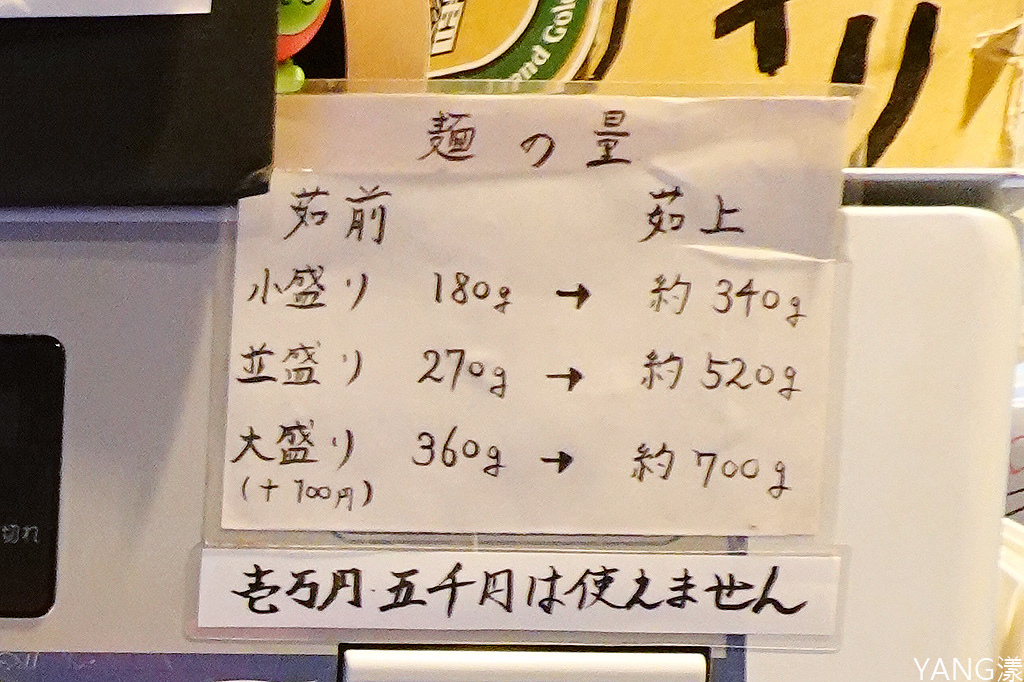 and Gol
麺の量
茹前 茹上
小盛り 180g → 約 340g
並盛り 270g → 約 520g
大盛り 360g → 約 700g
(+100円)
切れ
壱万円・五千円は使えません
YANG漾